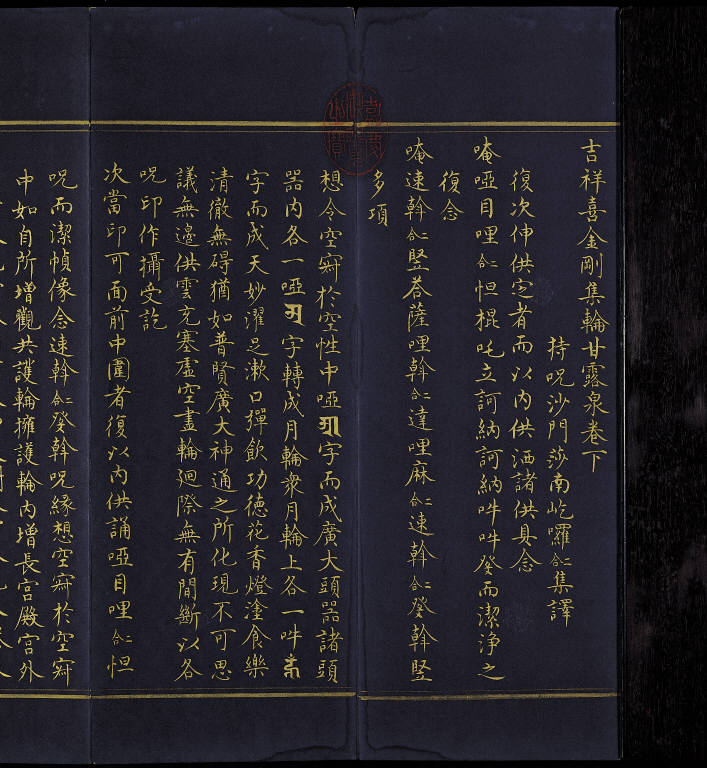 吉祥喜金剛集輪甘露泉卷下
持呪沙門莎南屹囉合二集譯
復次伸供定者而以内供洒諸供具念
唵啞目哩合二怛棍吒立訶納訶納吽吽癹而潔淨之
復念
唵速斡合二竪荅薩哩斡合二達哩麻合二速斡合二癹斡竪
多項
想令空寂於空性中啞字而成廣大頭噐諸頭
噐内各一啞字轉成月輪衆月輪上各一吽
字而成天妙濯足漱口彈飲功德花香燈塗食樂
清徹無碍猶如普賢廣大神通之所化現不可思
議無邊供雲充塞虛空盡輪廻際無有間斷以各
呪印作攝受訖
次當印可面前中圍者復以内供誦啞目哩合二怛
呪而潔幀像念速斡合二癹斡呪緣想空寂於空寂
中如自所增觀共護輪擁護輪内增長宫殿宫外